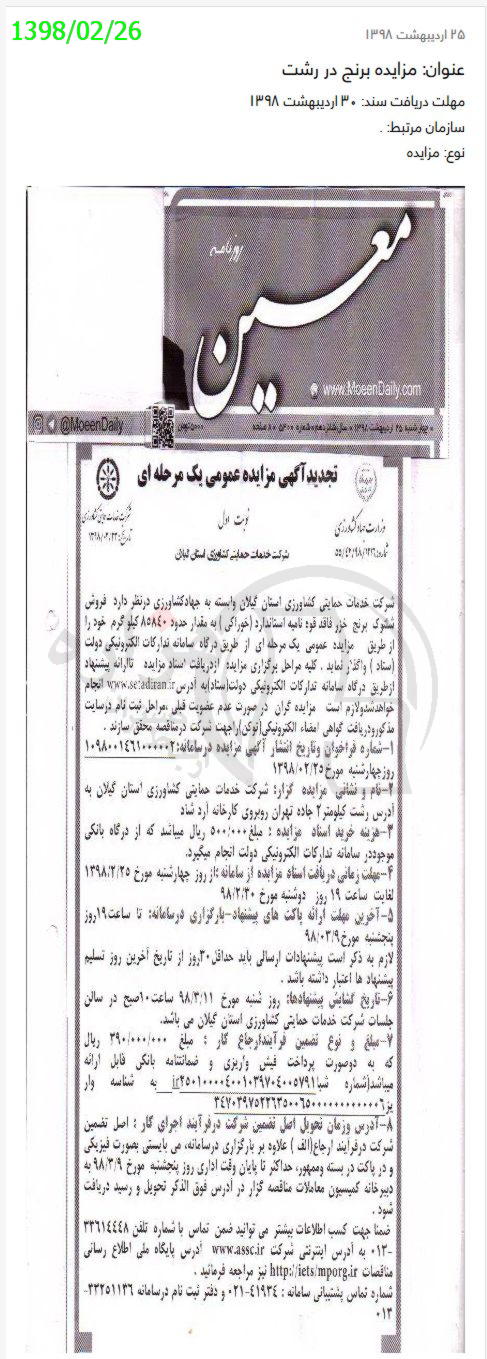 1398/02/26
۲۵ اردیبهشت ۱۳۹۸
عنوان: مزایده برنج در رشت
مهلت دریافت سند: ۳۰ اردیبهشت ۱۳۹۸
سازمان مرتبط: .
نوع: مزایده
روزنامه
معین
www.MoeenDaily.com
چهارشنبه ۲۵ اردیبهشت ۱۳۹۸ • سال شانزدهم • شماره ۵۳۰۰ • ۸ صفحه
@MoeenDaily
تجدید آگهی مزایده عمومی یک مرحله ای
نوبت اول
وزارت جهاد کشاورزی
شرکت خدمات حمایتی کشاورزی استان گیلان
شرکت خدمات حمایتی کشاورزی استان گیلان وابسته به جهادکشاورزی درنظر دارد فروش
شلتوک برنج خزر فاقد قوه نامیه استاندارد (خوراکی) به مقدار حدود ۸۵۸۴۰ کیلو گرم خود را
از طریق مزایده عمومی یک مرحله ای از طریق درگاه سامانه تدارکات الکترونیکی دولت
(ستاد) واگذار نماید . کلیه مراحل برگزاری مزایده ازدریافت اسناد مزایده تاارائه پیشنهاد
ازطریق درگاه سامانه تدارکات الکترونیکی دولت(ستاد)به آدرس www.setadiran.ir انجام
خواهدشدولازم است مزایده گران در صورت عدم عضویت قبلی ،مراحل ثبت نام درسایت
مذکورودریافت گواهی امضاء الکترونیکی(توکن)راجهت شرکت درمناقصه محقق سازند .
۱-شماره فراخوان وتاریخ انتشار آگهی مزایده درسامانه:۱۰۹۸۰۰۱۴۶۱۰۰۰۰۰۲
روزچهارشنبه مورخ ۱۳۹۸/۰۲/۲۵
۲-نام و نشانی مزایده گزار: شرکت خدمات حمایتی کشاورزی استان گیلان به
آدرس رشت کیلومتر۲ جاده تهران روبروی کارخانه آرد شاد
۳-هزینه خرید اسناد مزایده : مبلغ ۵۰۰/۰۰۰ ریال میباشد که از درگاه بانکی
موجوددر سامانه تدارکات الکترونیکی دولت انجام میگیرد.
۴-مهلت زمانی دریافت اسناد مزایده از سامانه :از روز چهارشنبه مورخ ۱۳۹۸/۲/۲۵
لغایت ساعت ۱۹ روز دوشنبه مورخ ۹۸/۲/۳۰
۵-آخرین مهلت ارائه پاکت های پیشنهاد-بارگزاری درسامانه: تا ساعت۱۹روز
پنجشنبه مورخ ۹۸/۰۳/۹
لازم به ذکر است پیشنهادات ارسالی باید حداقل۳۰روز از تاریخ آخرین روز تسلیم
پیشنهاد ها اعتبار داشته باشد .
۶-تاریخ گشایش پیشنهادها: روز شنبه مورخ ۹۸/۳/۱۱ ساعت۱۰صبح در سالن
جلسات شرکت خدمات حمایتی کشاورزی استان گیلان می باشد.
۷-مبلغ و نوع تضمین فرآیندارجاع کار : مبلغ ۳۹۰/۰۰۰/۰۰۰ ریال
که به دوصورت پرداخت فیش واریزی و ضمانتنامه بانکی قابل ارائه
میباشد(شماره شبا ir۲۵۰۱۰۰۰۰۴۰۰۱۰۳۹۷۰۴۰۰۵۷۹۱ به شناسه وار
یز ۳۴۷۰۳۹۷۵۲۲۶۳۵۰۰۶۵۰۰۰۰۰۰۰۰۰۰۰۰۶
۸-آدرس وزمان تحویل اصل تضمین شرکت درفرآیند اجرای کار : اصل تضمین
شرکت درفرایند ارجاع(الف ) علاوه بر بارگزاری درسامانه، می بایستی بصورت فیزیکی
و در پاکت در بسته وممهور، حداکثر تا پایان وقت اداری روز پنجشنبه مورخ ۹۸/۳/۹ به
دبیرخانه کمیسیون معاملات مناقصه گزار در آدرس فوق الذکر تحویل و رسید دریافت
شود .
ضمنا جهت کسب اطلاعات بیشتر می توانید ضمن تماس با شماره تلفن ۳۳۶۱۴۴۴۸
-۰۱۳ به آدرس اینترنتی شرکت www.assc.ir آدرس پایگاه ملی اطلاع رسانی
مناقصات http://iets/mporg.ir نیز مراجعه فرمائید .
شماره تماس پشتیبانی سامانه : ۴۱۹۳۴-۰۲۱ و دفتر ثبت نام درسامانه ۳۳۲۵۱۱۳۶-
۰۱۳